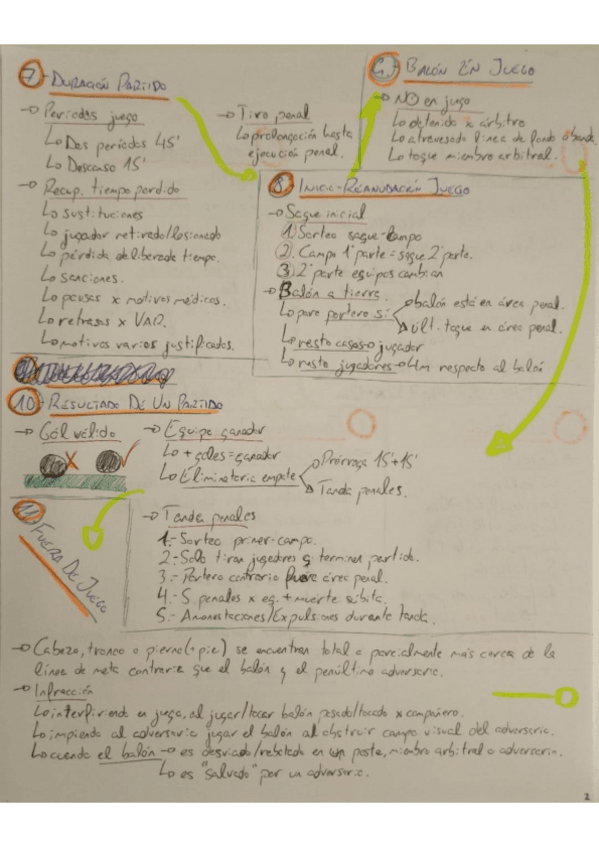 7 - DURACIÓN PARTIDO
-> Periodos juego
Lo Dos períodos 45'
Lo Descanso 15'
-> Recup. tiempo perdido
Lo sustituciones
Lo jugador retirado/lesionado
Lo pérdida deliberada tiempo.
Lo sanciones.
Lo pausas x motivos médicos.
Lo retrasos x VAR.
Lo motivos varios justificados.
-> Tiro penal
Lo prolongación hasta
ejecución penal.
BALÓN EN JUEGO
-> NO en juego
Lo detenido x árbitro
Lo atravesado línea de fondo o banda.
Lo toque miembro arbitral.
8 - INICIO-REANUDACIÓN JUEGO
-> Saque inicial
1) Sorteo saque-campo
2). Campo 1ª parte = saque 2ª parte.
3) 2ª parte equipos cambian
-> Balón a tierra
Lo para portero si balón está en área penal.
últ. toque en área penal.
Lo resto casos -> jugador
Lo resto jugadores -> 4m respecto al balón
10 - RESULTADO DE UN PARTIDO
-> Gol válido
-> Equipo ganador
Lo + goles = ganador
Lo Eliminatoria empate
Prórroga 15'+15'
Tanda penales.
-> Tanda penales
1.- Sorteo primer-campo.
2.- Solo tiran jugadores q terminan partido.
3.- Portero contrario fuera área penal.
4.- 5 penales x eq. + muerte súbita.
5.- Amonestaciones/Expulsiones durante tanda.
11 - FUERA DE JUEGO
-> Cabeza, tronco o pierna (+pie) se encuentran total o parcialmente más cerca de la
línea de meta contraria que el balón y el penúltimo adversario.
-> Infracción
Lo interfiriendo en juego, al jugar/tocar balón pasado/tocado x compañero.
Lo impiendo al adversario jugar el balón al obstruir campo visual del adversario.
Lo cuando el balón -> es desviado/rebotado en un poste, miembro arbitral o adversario.
Lo es "salvado" por un adversario.
2